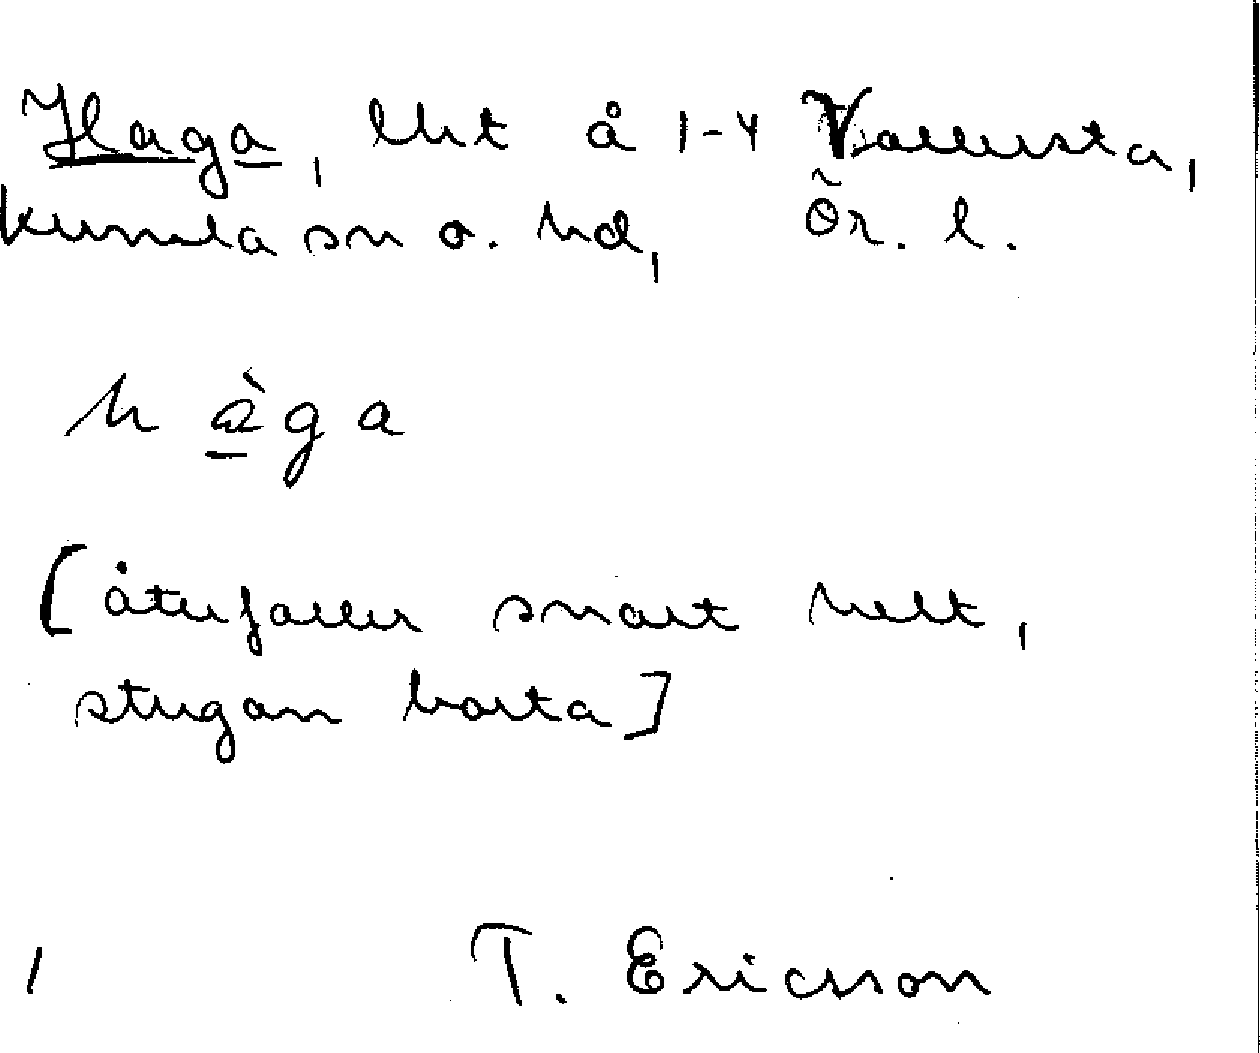 Haga, lht å 1-4 Vallersta,
Kumla sn o. hd, Ör. l.
hàga
[återfaller snart helt,
stugan borta]
T. Ericson